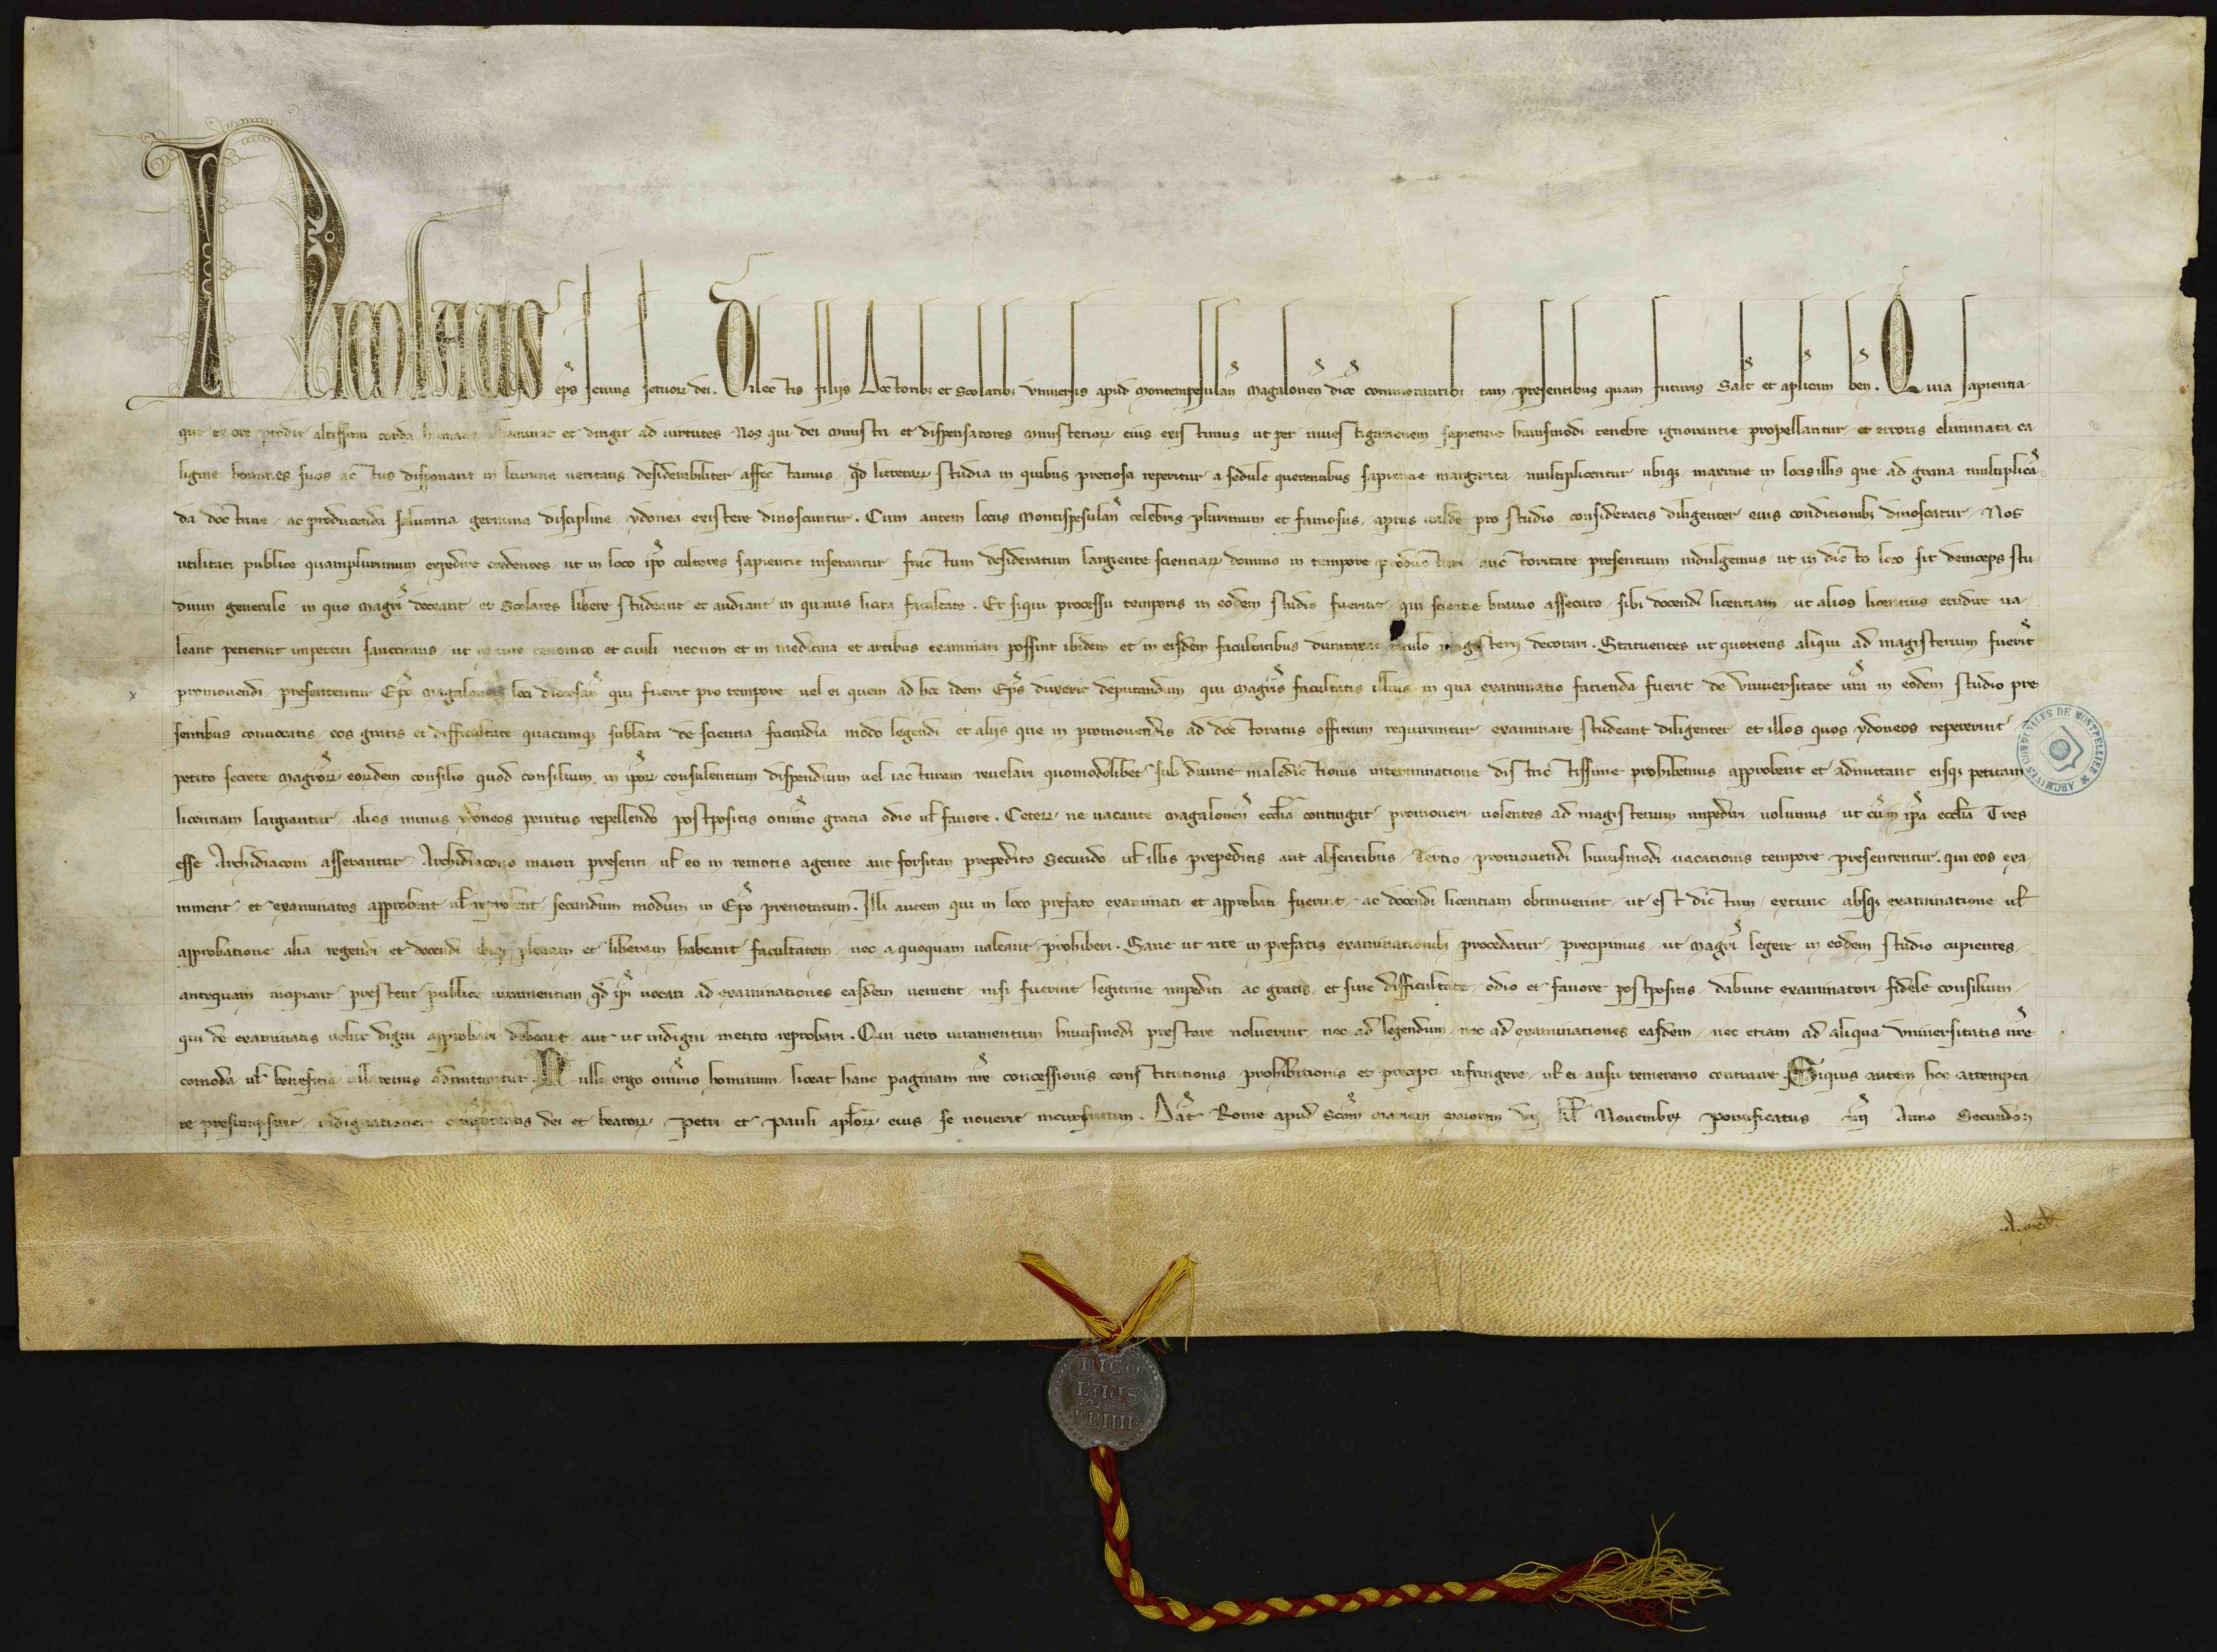 Nicolaus ep̄s servus servoꝝ dei. Dilectis filiis Doctoribꝫ et Scolaribꝫ Universis apud Montempesulan̄ Magalonen̄ dioc̄ commorantibꝫ tam presentibus quam futuris Salt̄ et aplicam ben̄. Quia sapientia
que ex ore prodiit altissimi corda humana illuminat et dirigit ad virtutes Nos qui dei ministri et dispensatores ministerioꝝ eius existimus ut per investigationem sapientie huiusmodi tenebre ignorantie propellantur et erroris eliminata ca
ligine homines suos actus disponant in lumine veritatis desiderabiliter affectamus qd̄ litteraꝝ studia in quibus pretiosa reperitur a sedule querentibus sapientie margarita multiplicentur ubiqꝫ maxime in locis illis que ad grana multiplican̄
da doctrine ac producenda salutaria germina discipline ydonea existere dinoscuntur. Cum autem locus Montispesulan̄ celebris plurimum et famosus aptus valde pro studio consideratis diligenter eius conditionibꝫ dinoscatur Nos
utilitati publice quamplurimum expedire credentes ut in loco ip̄o cultores sapientie inserantur fructum desideratum largiente scientiaꝝ domino in tempore producturi auctoritate presentium indulgemus ut in dicto loco sit deinceps stu
dium generale in quo magr̄i doceant et Scolares libere studeant et audiant in quavis licita facultate. Et siqui processu temporis in eodem studio fuerint qui scientie bravio assecuto sibi docendi licentiam ut alios licentius erudire va
leant petierint impertiri sanccimus ut in iure canonico et civili necnon et in medicina et artibus examinari possint ibidem et in eisdem facultatibus dumtaxat titulo magisterii decorari. Statuentes ut quotiens aliqui ad magisterium fuerint̄
promovendi presententur Ep̄o Magalonen̄ loci diocesan̄ qui fuerit pro tempore vel ei quem ad hec idem Ep̄s duxerit deputandum qui magr̄is facultatis illius in qua examinatio facienda fuerit de Universitate vr̄a in eodem studio pre
sentibus convocatis eos gratis et difficultate quacumqꝫ sublata de scientia facundia modo legendi et aliis que in promovendis ad doctoratus officium requiruntur examinare studeant diligenter et illos quos ydoneos repererint
petito secrete magr̄oꝝ eoꝝdem consilio quod consilium in ip̄oꝝ consulentium dispendium vel iacturam revelari quomodolibet sub divine maledictionis interminatione districtissime prohibemus approbent et admittant eisqꝫ petitam
licentiam largiantur alios minus ydoneos penitus repellendo postpositis omnino gratia odio ul̄ favore. Ceteꝝ ne vacante Magalonen̄ eccl̄ia contingat promoveri volentes ad magisterium impediri volumus ut cūm ip̄a eccl̄ia Tres
esse Archidiaconi asserantur Archidiacono maiori presenti ul̄ eo in remotis agente aut forsitan prepedito Secundo ul̄ illis prepeditis aut absentibus Tertio promovendi huiusmodi vacationis tempore presententur. qui eos exa
minent et examinatos approbent ul̄ reprobent secundum modum in Ep̄o prenotatum. Illi autem qui in loco prefato examinati et approbati fuerint ac docendi licentiam obtinuerint ut est dictum extunc absqꝫ examinatione ul̄
approbatione alia regendi et docendi ubiqꝫ plenam et liberam habeant facultatem nec a quoquam valeant prohiberi. Sane ut rite in prefatis examinationibꝫ procedatur precipimus ut magr̄i legere in eodem studio cupientes
antequam incipiant prestent publice iuramentum qd̄ ip̄i vocati ad examinationes easdem venient nisi fuerint legitime impediti ac gratis et sine difficultate odio et favore postpositis dabunt examinatori fidele consilium
qui de examinatis velut digni approbari debeant aut ut indigni merito reprobari. Qui vero iuramentum huiusmodi prestare noluerint nec ad legendum nec ad examinationes easdem nec etiam ad aliqua Universitatis vr̄e
comoda ul̄ beneficia ullatenus admittantur. Nulli ergo omnino hominum liceat hanc paginam nr̄e concessionis constitutionis prohibitionis et precepti infringere ul̄ ei ausu temerario contraire. Siquis autem hoc attempta
re presumpserit indignationem omnipotentis dei et beatoꝝ Petri et Pauli apl̄oꝝ eius se noverit incursurum. Dat̄ Rome apud Scām Mariam maiorem vij kl̄ Novembꝝ Pontificatus nr̄i Anno Secundo
.A. med̄.
NICO
LAUS
PP IIII
ARCHIVES COMMUNALES DE MONTPELLIER